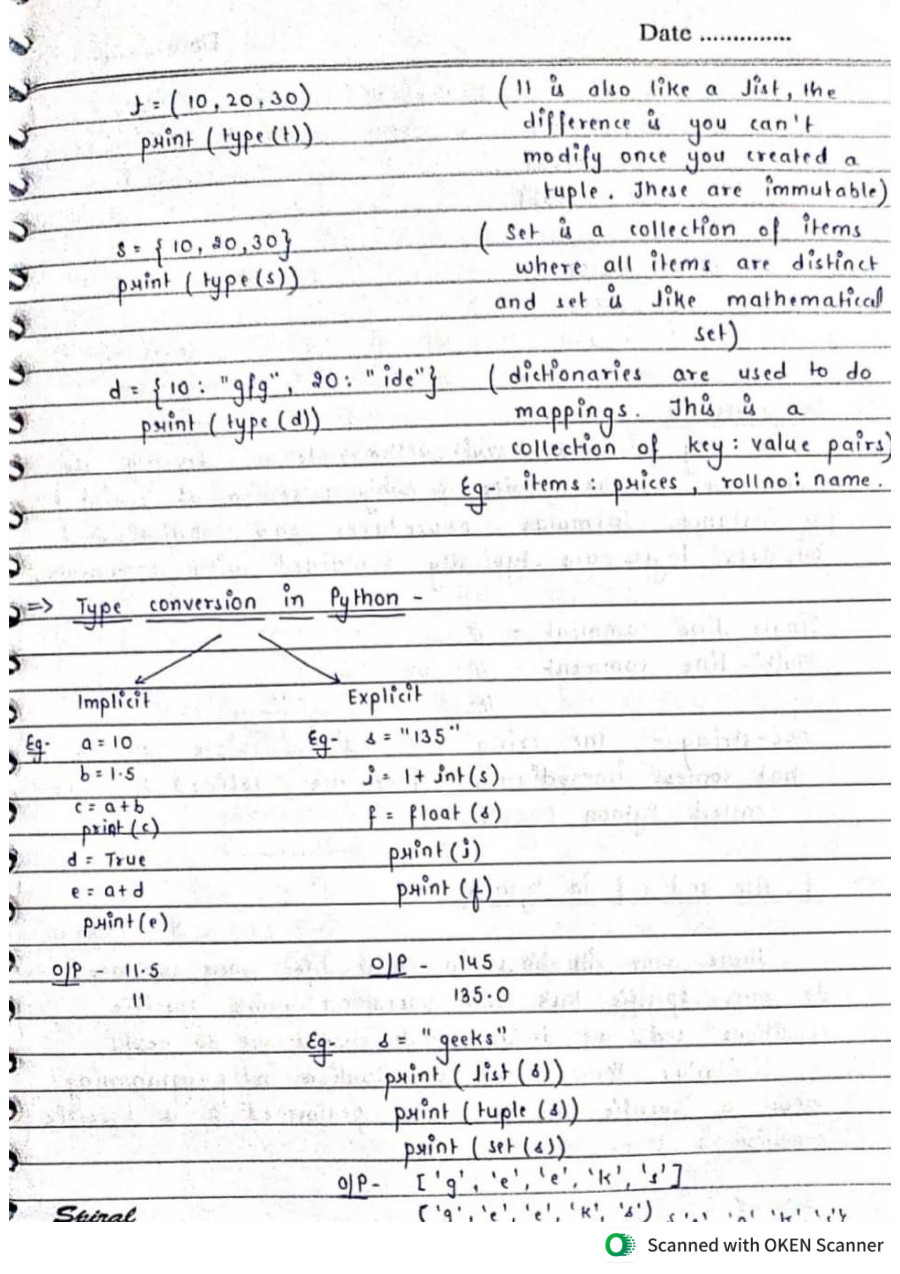 Date ..............
t = ( 10, 20, 30)
print ( type (t))
( It is also like a list, the
difference is you can't
modify once you created a
tuple. These are immutable)
s = { 10, 20, 30}
print ( type (s))
( Set is a collection of items
where all items are distinct
and set is like mathematical
set)
d = { 10 : "gfg", 20 : "ide"}
print ( type (d))
( dictionaries are used to do
mappings. This is a
collection of key : value pairs)
Eg- items : prices , rollno : name.
=> Type conversion in Python -
Implicit
Eg- a = 10
b = 1.5
c = a+b
print (c)
d = True
e = a+d
print (e)
O/P - 11.5
11
Explicit
Eg- s = "135"
i = 1+ int (s)
f = float (s)
print (i)
print (f)
O/P - 145
135.0
Eg- s = "geeks"
print ( list (s))
print ( tuple (s))
print ( set (s))
O/P - ['g', 'e', 'e', 'k', 's']
('g', 'e', 'e', 'k', 's')
Spiral
Scanned with OKEN Scanner